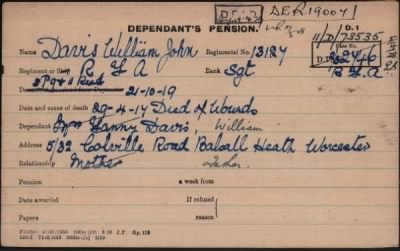 DEPENDANT'S PENSION.
D.E.R. 19004/1
D. 1
11/D/73535
Name Davis William John Regimental No. 13127
Regiment or Ship R F A Rank Sgt.
21-10-19
Date and cause of death 29-4-17 Died of Wounds
Dependant Fanny Davis. William
Address 5/32 Colville Road Balsall Heath Worcester
Relationship Mother Father.
Pension a week from
Date awarded If refused
Papers reason